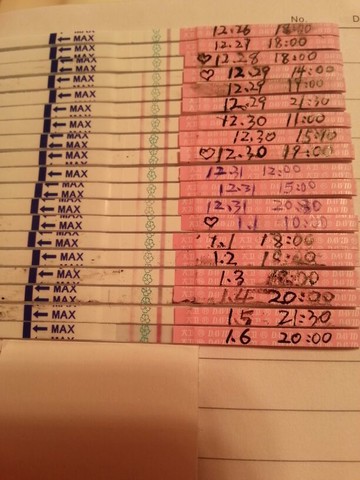 No.
D
MAX 12.26 18:00
MAX 12.27 18:00
MAX ♡ 12.28 18:00
MAX ♡ 12.29 14:00
MAX 12.29 19:00
MAX 12.29 21:30
MAX 12.30 11:00
MAX 12.30
MAX ♡ 12.30 19:00
MAX 12.31 12:00
MAX 12.31 15:00
MAX 12.31 20:30
MAX ♡ 1.1
MAX 1.1 18:00
MAX 1.2
MAX 1.3
MAX 1.4 20:00
MAX 1.5 21:30
MAX 1.6 20:00